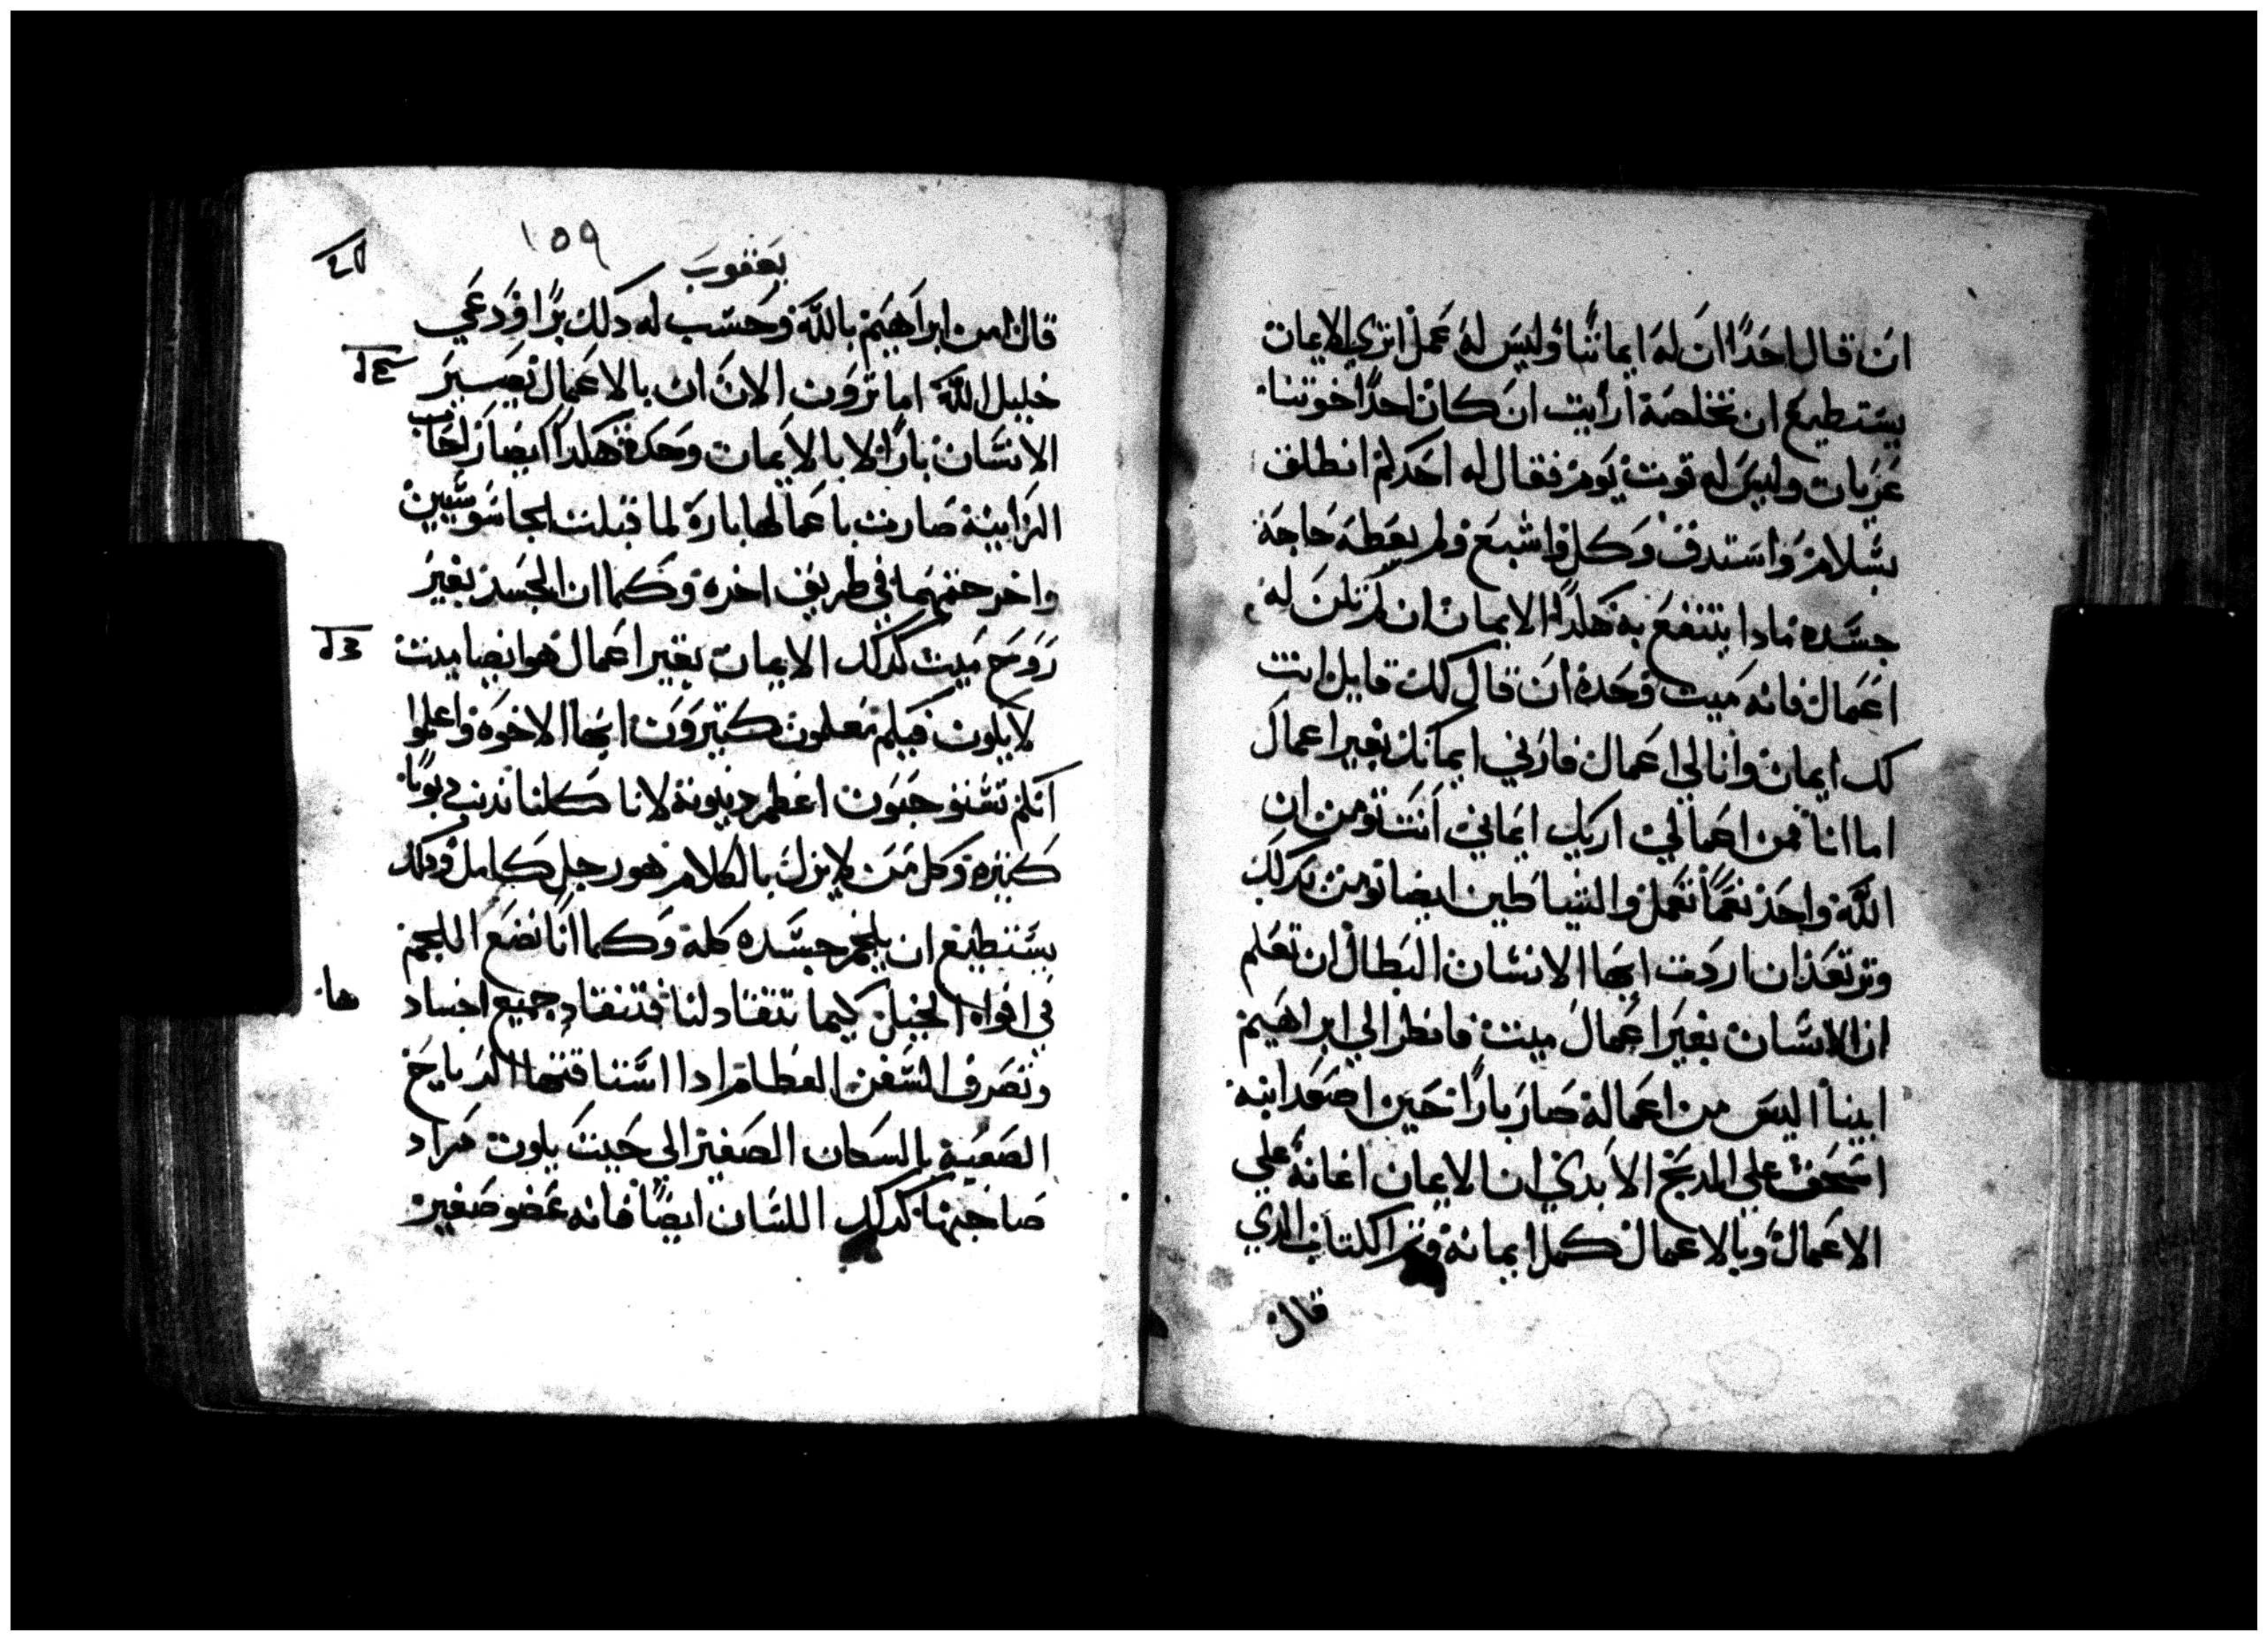 ان قال احدًا ان له ايماننا وليس له عمل اترى الايمان
يستطيع ان يخلصه ارأيت ان كان احدًا خوتنا
عريان وليس له قوت يوم فقال له احدكم انطلق
بسلام واستدف وكل واشبع ولم يعطه حاجة
جسده مادا ينتفع به هكدا الايمان ان لم تكن له
اعمال فانه ميت وحده ان قال لك قايل انت
لك ايمان وانا لي اعمال فارني ايمانك بغير اعمال
اما انا فمن اعمالي اريك ايماني انت تومن ان
الله واحد نعمًا تعمل والشياطين ايضا تومن بدلك
وترتعد ان اردت ايها الانسان البطال ان تعلم
ان الانسان بغير اعمال ميت فانظر الي ابراهيم
ابينا اليس من اعماله صار بارًا حين اصعد ابنه
اسحق علي المدبح الابدي ان الايمان اعانه علي
الاعمال وبالاعمال كمل ايمانه وتم الكتاب الدي
قال
١٥٩
يعقوب
قال امن ابراهيم بالله وحسب له دلك برًا ودعي
خليل الله اما ترون الان ان بالاعمال يصير
الانسان بارًا لا بالايمان وحده هكدا ايضا راحاب
الزانية صارت باعمالها بارة لما قبلت الجاسوسيين
واخرجتهما في طريق اخره وكما ان الجسد بغير
روح ميت كدلك الايمان بغير اعمال هو ايضا ميت
لا يكون فيكم معلمون كتيرون ايها الاخوه واعلموا
انكم تستوجبون اعظم دينونة لانا كلنا ندنب دبوبًا
كتيره وكل من لا يزل بالكلام هو رجل كامل
يستطيع ان يلجم جسده كله وكما انا نضع اللجم
في افواه الخيل كيما تنقاد لنا فتنقاد جميع اجساد
ها
وتصرف السفن العظام ادا استاقتها الرياح
الصعبة بالسكان الصغير الى حيت يكون مراد
صاحبها كدلك اللسان ايضًا فانه عضو صغير